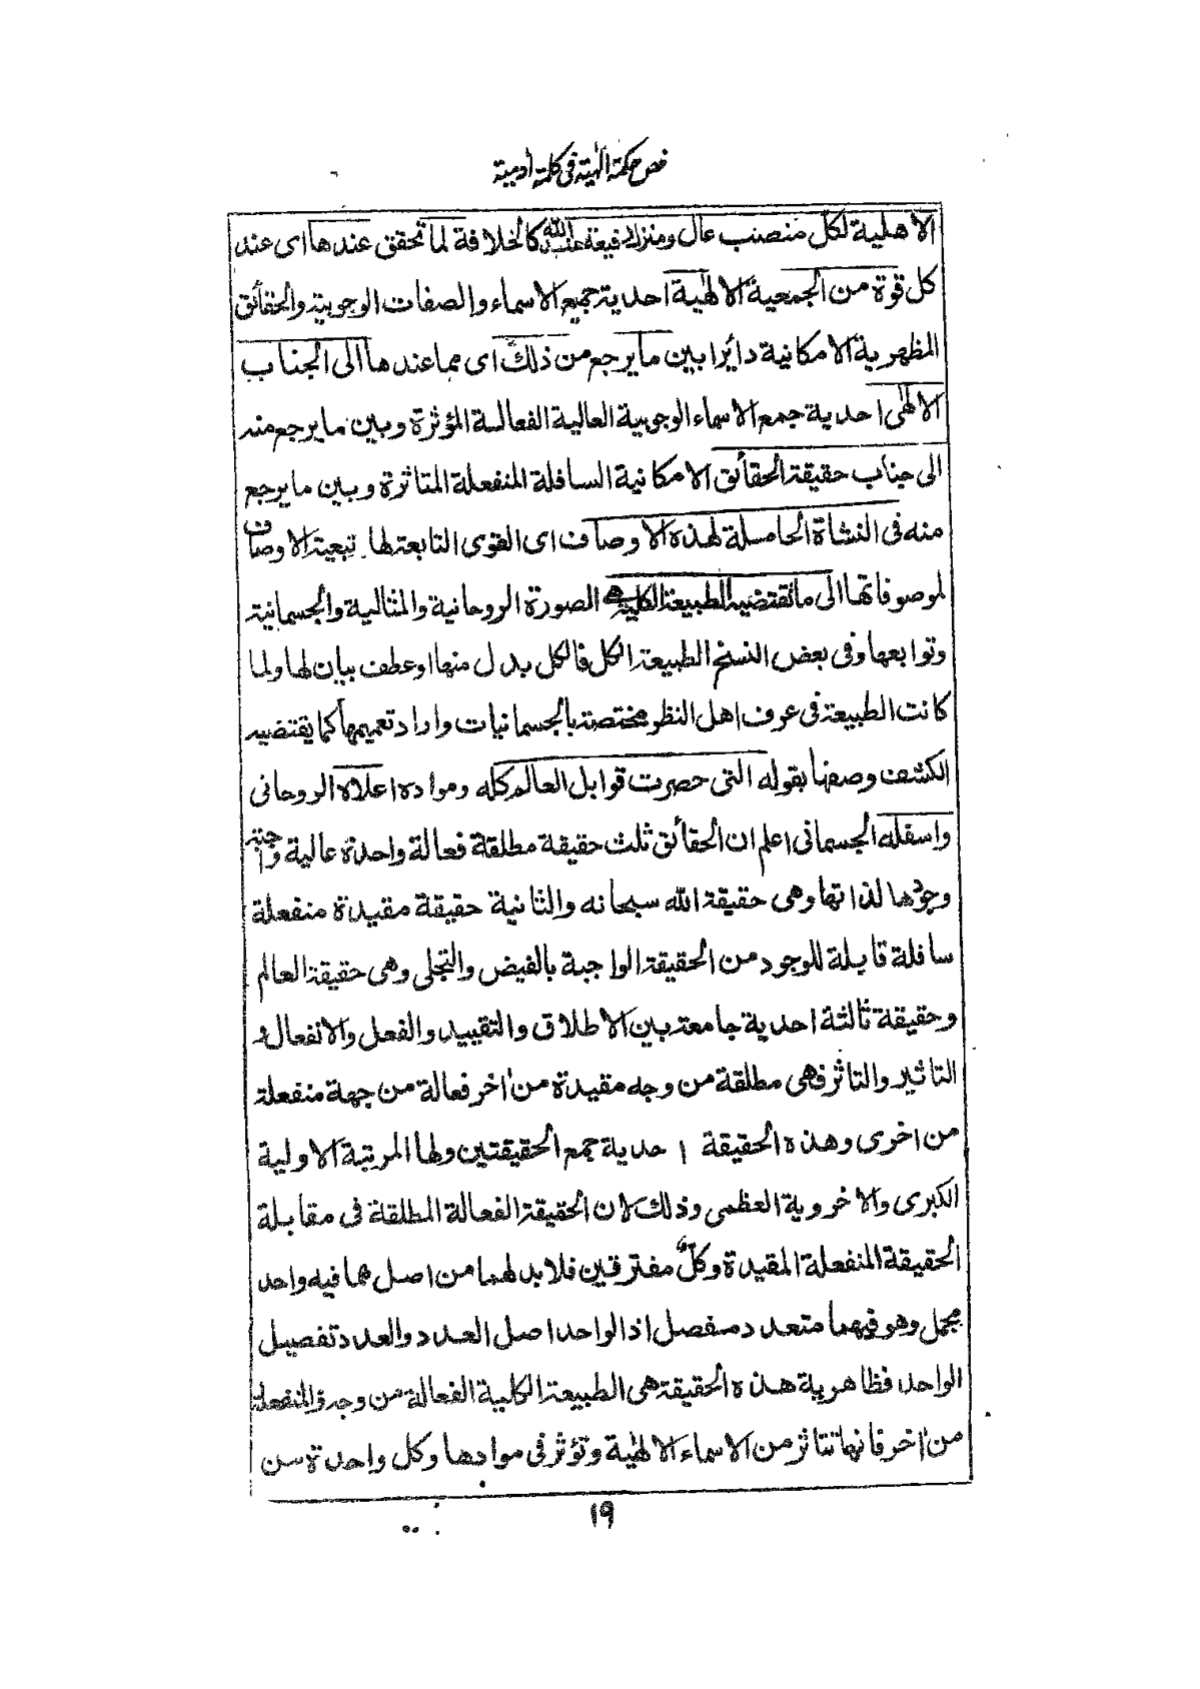 فص حكمة الٰهية فى كلمة آدمية
الاهلية لكل منصب عال ومنزلة رفيعة عند الله كالخلافة لما تحقق عندها اى عند
كل قوة من الجمعية الالٰهية احدية جميع الاسماء والصفات الوجوبية والحقائق
المظهرية الامكانية دائرا بين ما يرجع من ذلك اى مما عندها الى الجناب
الالٰهى احدية جمع الاسماء الوجوبية العالية الفعالة المؤثرة وبين ما يرجع منه
الى جناب حقيقة الحقائق الامكانية السافلة المنفعلة المتاثرة وبين ما يرجع
منه فى النشاة الحاملة لهذه الاوصاف اى القوى التابعة لها تبعية الاوصاف
لموصوفاتها الى ما تقتضيه الطبيعة الكلية هى الصورة الروحانية والمثالية والجسمانية
وتوابعها وفى بعض النسخ الطبيعة الكل فالكل بدل منها او عطف بيان لها ولما
كانت الطبيعة فى عرف اهل النظر مختصة بالجسمانيات واراد تعميمها كما يقتضيه
الكشف وصفها بقوله التى حصرت قوابل العالم كله ومواده اعلاه الروحانى
واسفله الجسمانى اعلم ان الحقائق ثلث حقيقة مطلقة فعالة واحدة عالية واجبة
وجودها لذاتها وهى حقيقة الله سبحانه والثانية حقيقة مقيدة منفعلة
سافلة قابلة للوجود من الحقيقة الواجبة بالفيض والتجلى وهى حقيقة العالم
وحقيقة ثالثة احدية جامعة بين الاطلاق والتقييد والفعل والانفعال و
التاثير والتاثر فهى مطلقة من وجه مقيدة من اٰخر فعالة من جهة منفعلة
من اخرى وهذه الحقيقة احدية جمع الحقيقتين ولها المرتبة الاولية
الكبرى والاخروية العظمى وذلك لان الحقيقة الفعالة المطلقة فى مقابلة
الحقيقة المنفعلة المقيدة وكل مفترقين فلا بد لهما من اصل هما فيه واحد
مجمل وهو فيهما متعدد مفصل اذ الواحد اصل العدد والعدد تفصيل
الواحد فظاهرية هذه الحقيقة هى الطبيعة الكلية الفعالة من وجه والمنفعلة
من اٰخر فانها تتاثر من الاسماء الالٰهية وتؤثر فى موادها وكل واحدة من
١٩